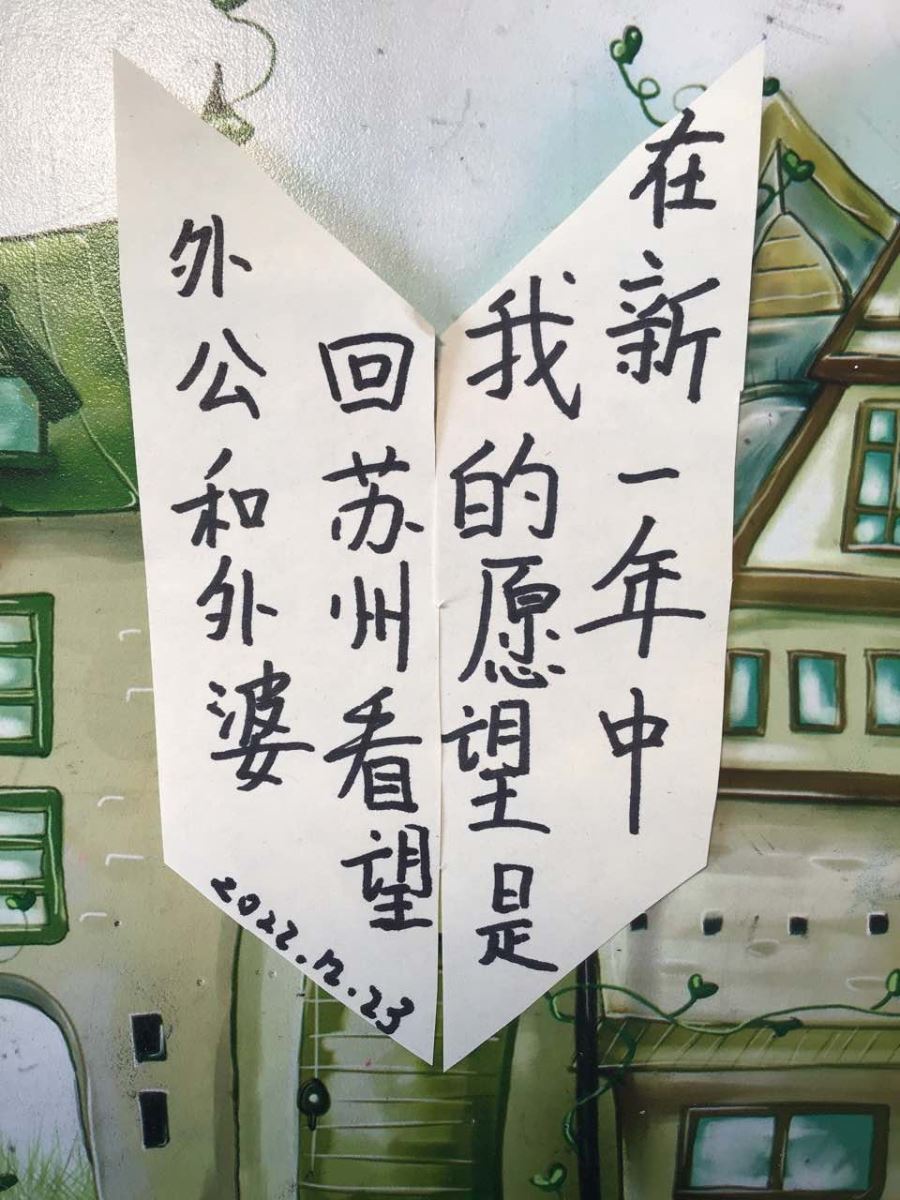 在新一年中
我的愿望是
回苏州看望
外公和外婆
2022.12.23